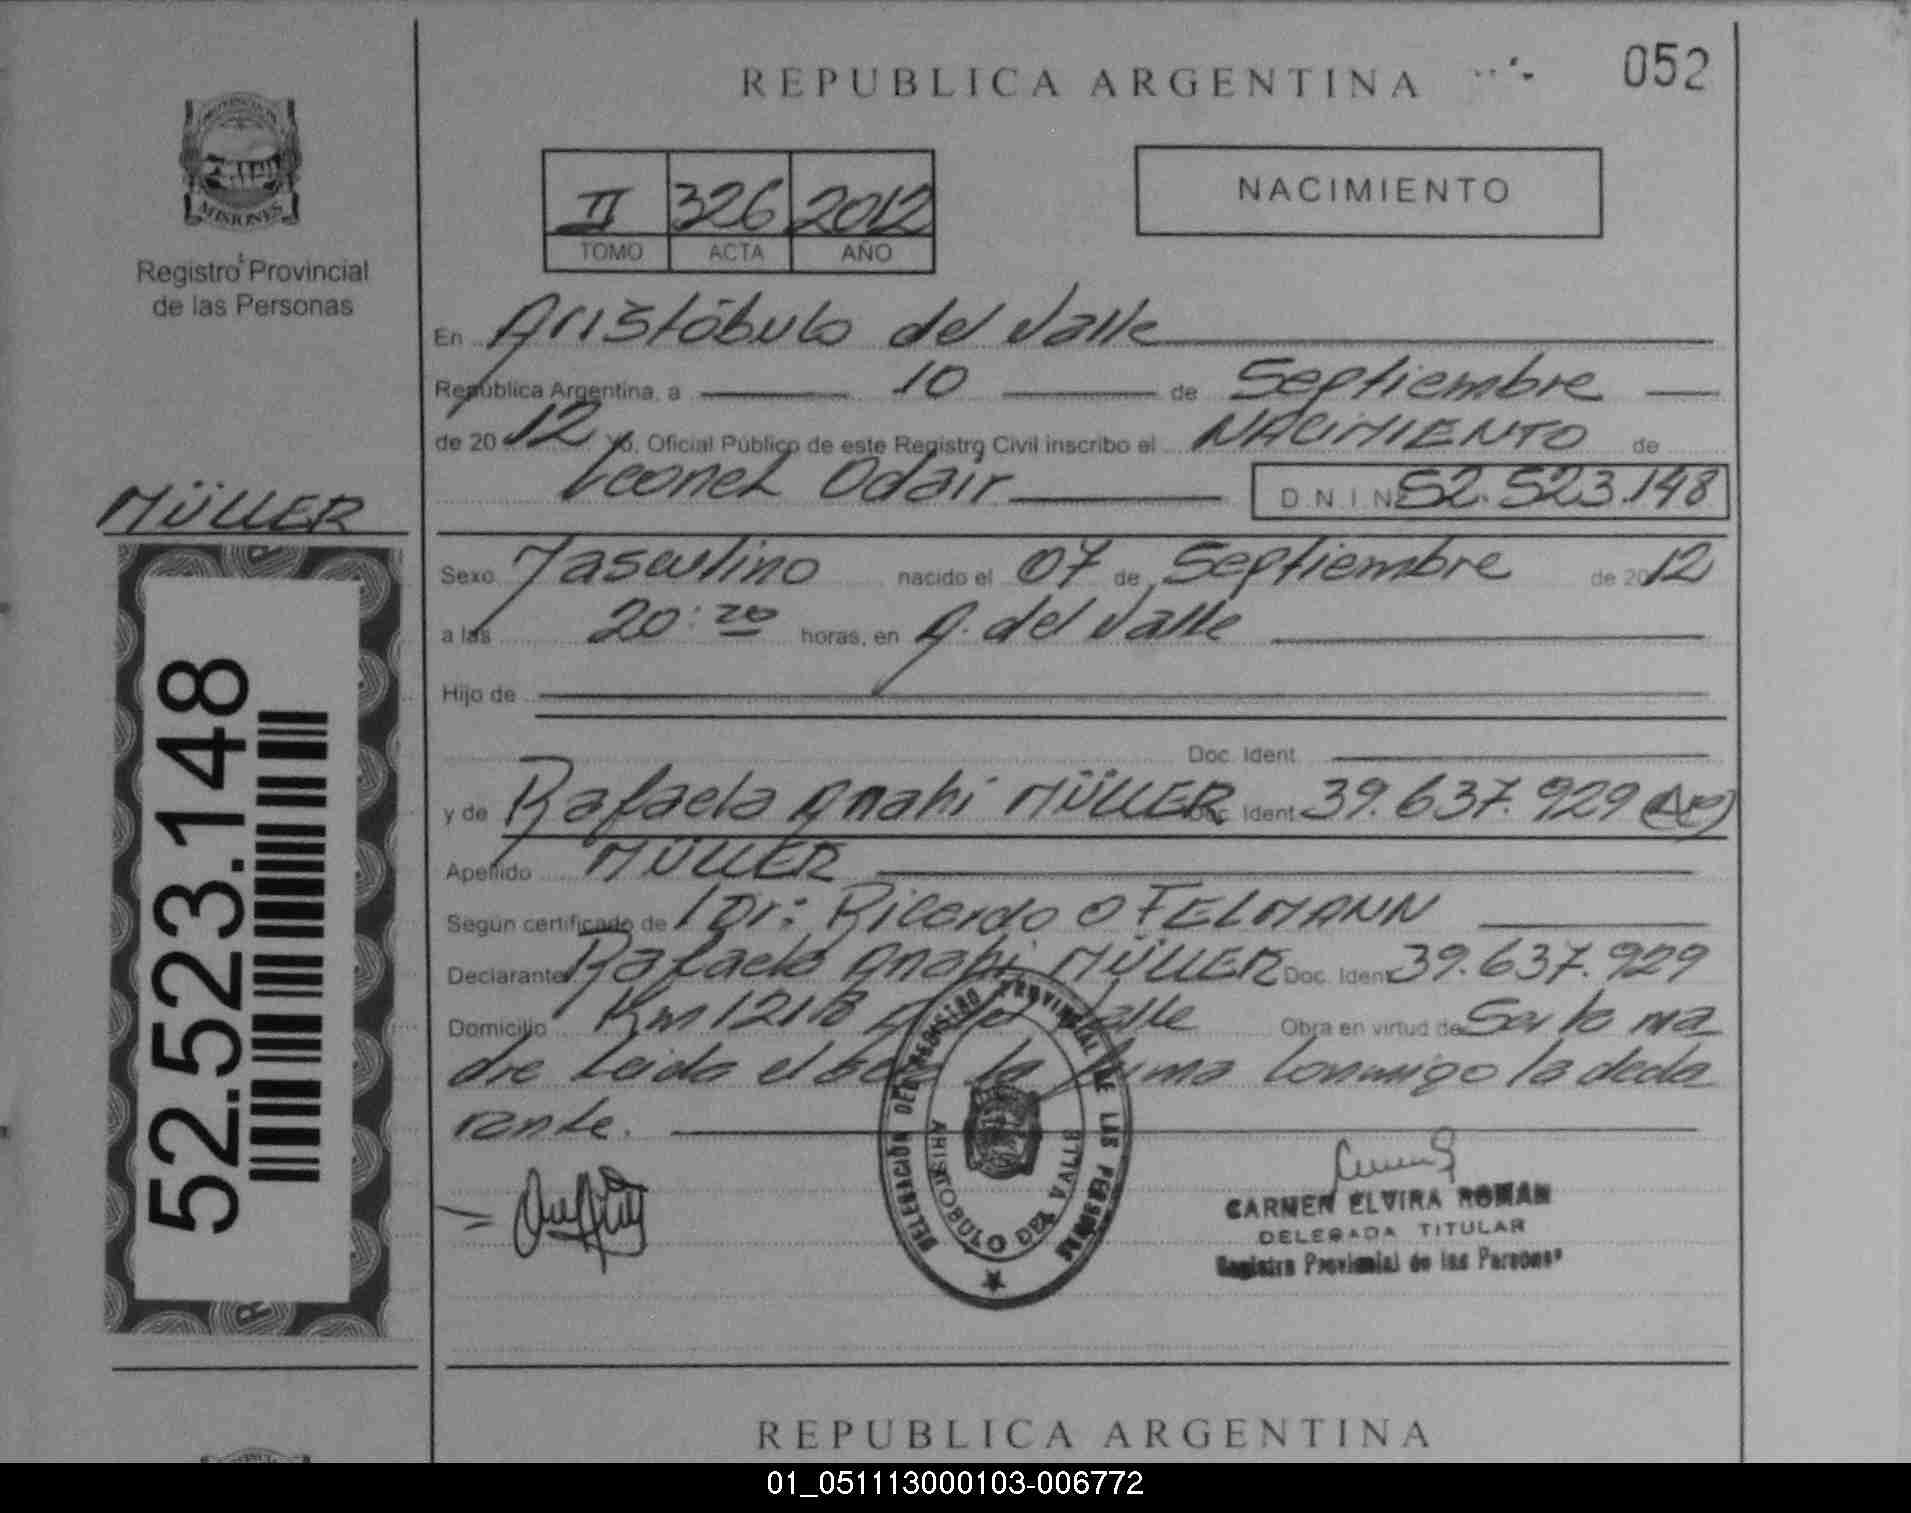 REPUBLICA ARGENTINA
052
MISIONES
Registro Provincial
de las Personas
II 326 2012
TOMO ACTA AÑO
NACIMIENTO
En Aristóbulo del Valle
República Argentina, a 10 de Septiembre
de 2012 Yo, Oficial Público de este Registro Civil inscribo el NACIMIENTO de
Leonel Odair D.N.I. Nº 52.523.148
MÜLLER
52.523.148
Sexo Masculino nacido el 07 de Septiembre de 2012
a las 20:20 horas, en A. del Valle
Hijo de
Doc. Ident.
y de Rafaela Anahi MÜLLER Doc. Ident. 39.637.929
Apellido MÜLLER
Según certificado de Dr: Ricardo O FELMANN
Declarante Rafaela Anahi MÜLLER Doc. Ident. 39.637.929
Domicilio Km 1218 A. del Valle Obra en virtud de Ser la ma
dre Leida el acta la firma Conmigo la decla
rante.
DELEGACIÓN DEL REGISTRO PROVINCIAL DE LAS PERSONAS
ARISTOBULO DEL VALLE
CARMEN ELVIRA ROMAN
DELEGADA TITULAR
Registro Provincial de las Personas
REPUBLICA ARGENTINA
01_051113000103-006772